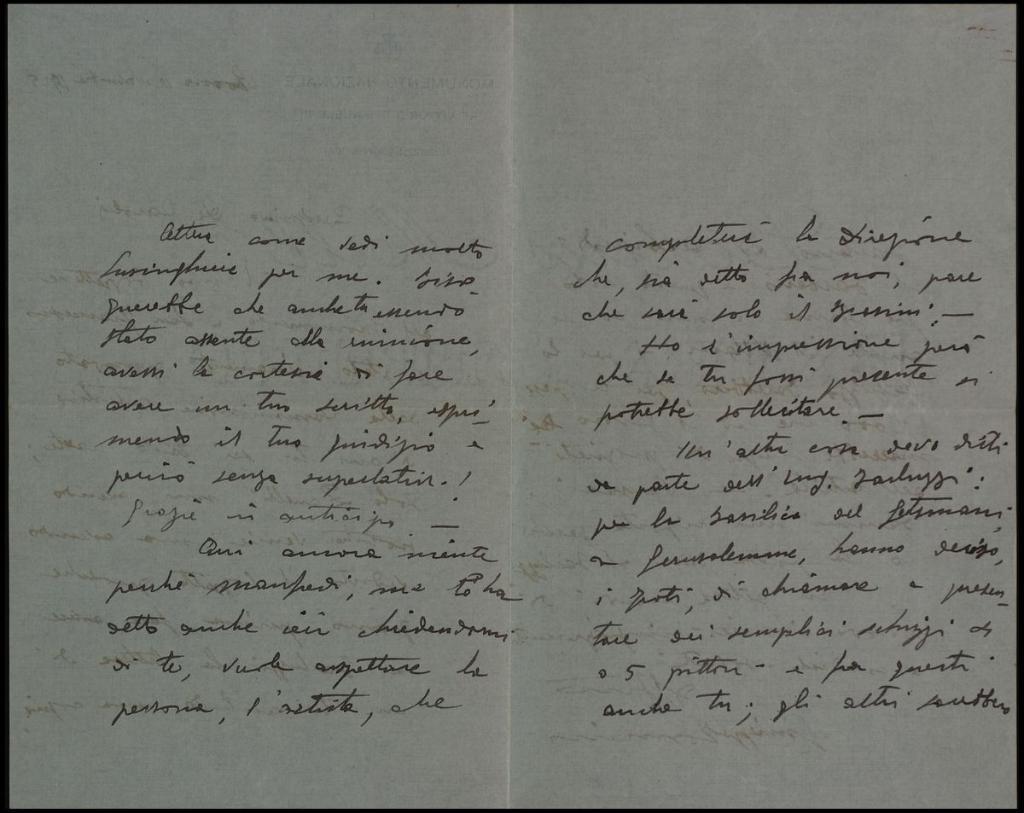 come vedi molto
lusinghiera per me. Biso
gnerebbe che anche tu essendo
stato assente alla riunione,
avessi la cortesia di fare
avere un tuo scritto, espri-
mendo il tuo giudizio e
perciò senza superlativi.!
Grazie in anticipo —
Qui ancora niente
perché Manfredi, me lo ha
detto anche ieri chiedendomi
di te, vuole aspettare la
persona, l'artista, che
completerà la Direzione
che, sia detto fra noi, pare
che sarà solo il —
Ho l'impressione però
che se tu fossi presente si
potrebbe sollecitare —
Un'altra cosa devo dirti
da parte dell'Ing. Barluzzi:
per la Basilica del Getsemani
a Gerusalemme, hanno deciso,
i frati, di chiamare a presen-
tare dei semplici schizzi 4
o 5 pittori — e fra questi
anche tu; gli altri sarebbero